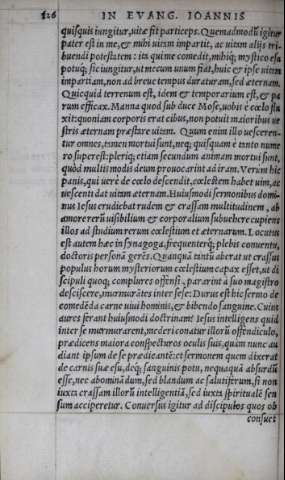 126 IN EVANG. IOANNIS
quisquis iungitur, uitæ fit particeps. Quemadmodũ igitur
pater est in me, & mihi uitam impartit, ac uitam alijs tri-
buendi potestatem: ita qui me comedit, mihiq; mystico esu
potuq; sic iungitur, ut mecum unum fiat, huic & ipse uitam
impartiam, non ad breue tempus duraturam, sed æternam.
Quicquid terrenum est, idem & temporarium est, & pa
rum efficax. Manna quod sub duce Mose, uobis è cœlo flu
xit: quoniam corporis erat cibus, non potuit maioribus ue
stris æternam præstare uitam. Quum enim illo uescceren-
tur omnes, tamen mortui sunt, neq; quisquam è tanto nume
ro superest: plerіq; etiam secundum animam mortui sunt,
quòd multis modis deum prouocarint ad iram. Verum hic
panis, qui uerè de cœlo descendit, cœlestem habet uim, ac
uescenti dat uitam æternam. Huiusmodi sermonibus domi-
nus Iesus erudiebat rudem & crassam multitudinem, ab
amore rerũ uisibilium & corporalium subuehere cupiens
illos ad studium rerum cœlestium et æternarum. Locutus
est autem hæc in synagoga, frequenterq; plebis conuentu,
doctoris personã gerẽs. Quanquã tantũ aberat ut crassus
populus horum mysteriorum cœlestium capax esset, ut di
scipuli quoq; complures offensi, pararint à suo magistro
desciscere, murmurãtes inter sese: Durus est hic sermo de
comedẽda carne uiui hominis, & bibendo sanguine. Cuius
aures ferant huiusmodi doctrinam? Iesus intelligens quid
inter se murmurarent, mederi conatur illorũ offendiculo,
prædicens maiora conspecturos oculis suis, quàm nunc au
diant ipsum de se prædicantẽ: et sermonem quem dixerat
de carnis suæ esu, deq; sanguinis potu, nequaquã absurdũ
esse, nec abominãdum, sed blandum ac salutiferum, si non
iuxta crassam illorũ intelligentiã, sed iuxta spiritualẽ sen
sum acciperetur. Conuersus igitur ad discipulos quos ob
consuet